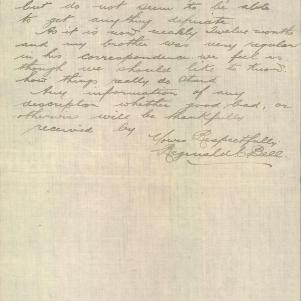 but do not seem to be able
to get anything definate.
As it is now nearly twelve months
and my brother was very regular
in his correspondence we feel as
though we should like to know
how things really do stand
Any information of any
description whether good, bad, or
otherwise will be thankfully
received by
Yours Respectfully
Reginald E Ball.